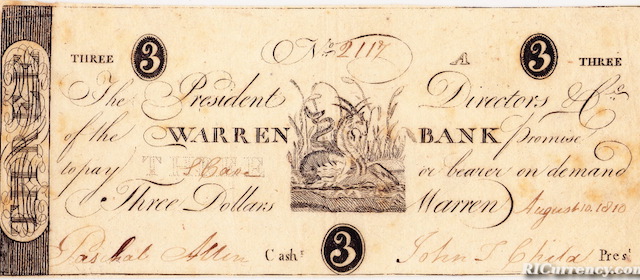 THREE 3 No 2117 A 3 THREE
The President Directors & Co
of the WARREN BANK Promise
to pay THREE or bearer on demand
Three Dollars Warren August 10. 1810
Paschal Allen Cashr 3 John T Child Prest
RICurrency.com